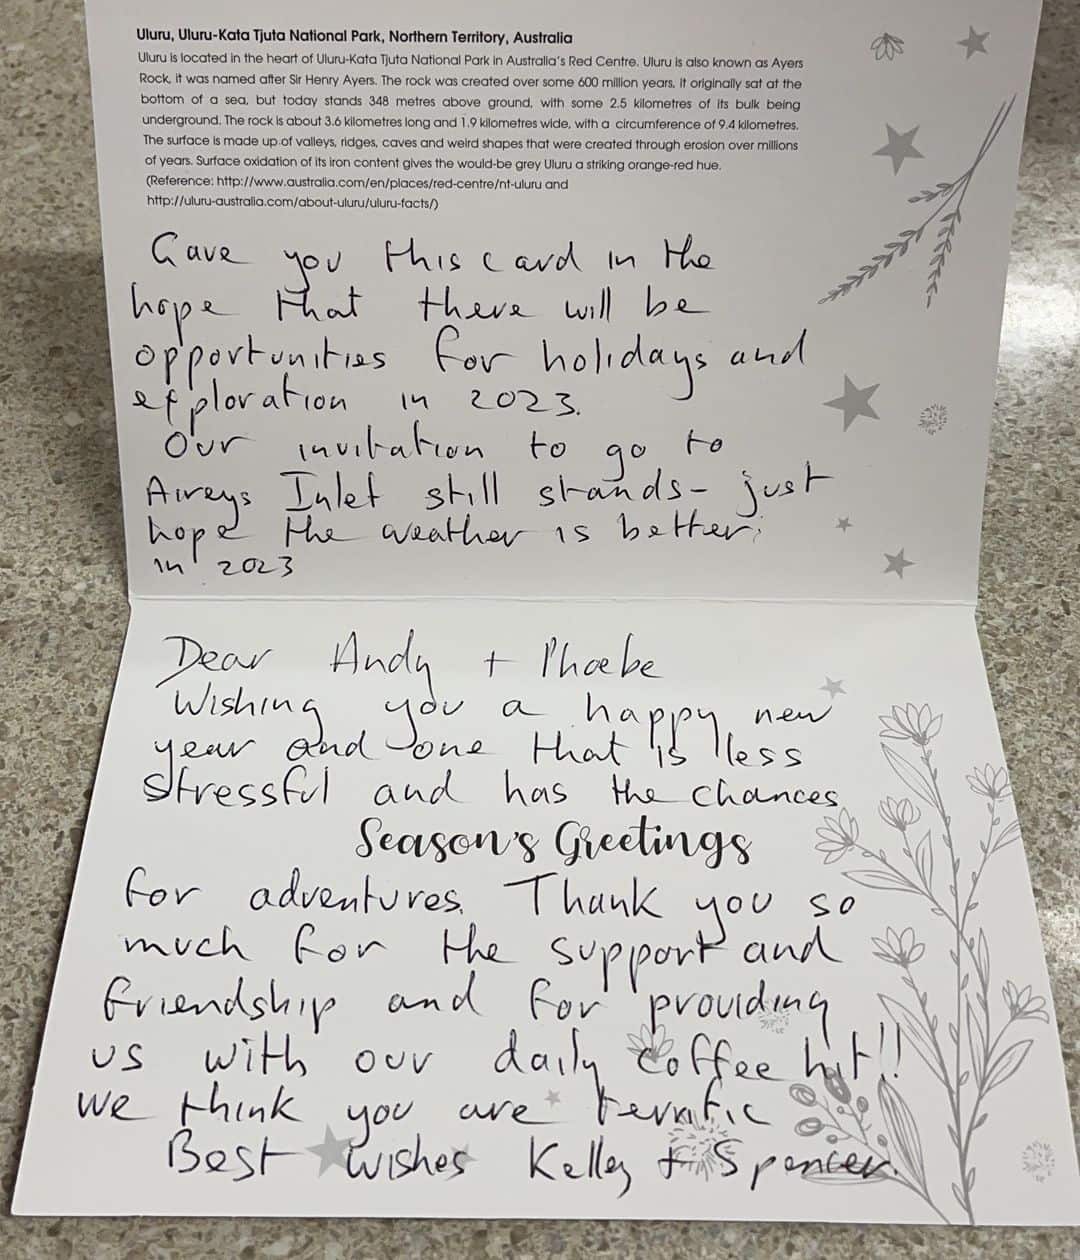 Uluru, Uluru-Kata Tjuta National Park, Northern Territory, Australia
Uluru is located in the heart of Uluru-Kata Tjuta National Park in Australia's Red Centre. Uluru is also known as Ayers
Rock, it was named after Sir Henry Ayers. The rock was created over some 600 million years, it originally sat at the
bottom of a sea, but today stands 348 metres above ground, with some 2.5 kilometres of its bulk being
underground. The rock is about 3.6 kilometres long and 1.9 kilometres wide, with a circumference of 9.4 kilometres.
The surface is made up of valleys, ridges, caves and weird shapes that were created through erosion over millions
of years. Surface oxidation of its iron content gives the would-be grey Uluru a striking orange-red hue.
(Reference: http://www.australia.com/en/places/red-centre/nt-uluru and
http://uluru-australia.com/about-uluru/uluru-facts/)
Gave you this card in the
hope that there will be
opportunities for holidays and
exploration in 2023.
Our invitation to go to
Aireys Inlet still stands - just
hope the weather is better
in 2023
Dear Andy + Phoebe
Wishing you a happy new
year and one that is less
stressful and has the chances
Season's Greetings
for adventures. Thank you so
much for the support and
friendship and for providing
us with our daily coffee hit!!
We think you are terrific
Best wishes Kelley + Spencer.